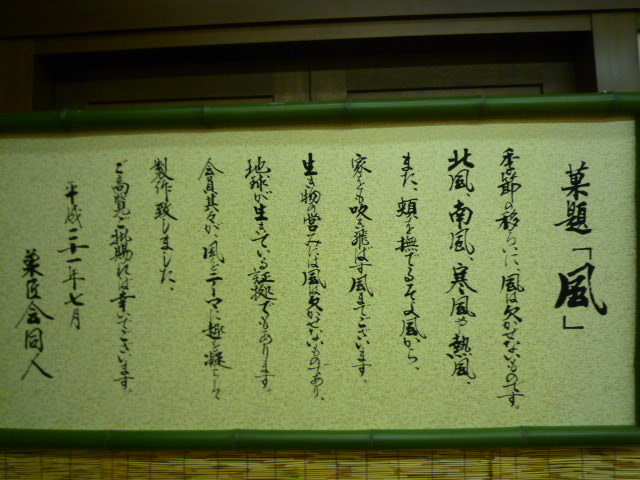 菓題「風」
季節の移ろいに、風は欠かせないものです。
北風、南風、寒風や熱風、
また、頬を撫でるそよ風から、
家をも吹き飛ばす風までございます。
生き物の営みには風は欠かせないものであり、
地球が生きている証拠でもあります。
会員其々が、風をテーマに趣を凝らして
製作致しました。
ご高覧ご批賜れば幸いでございます。
平成二十一年七月
菓匠会同人